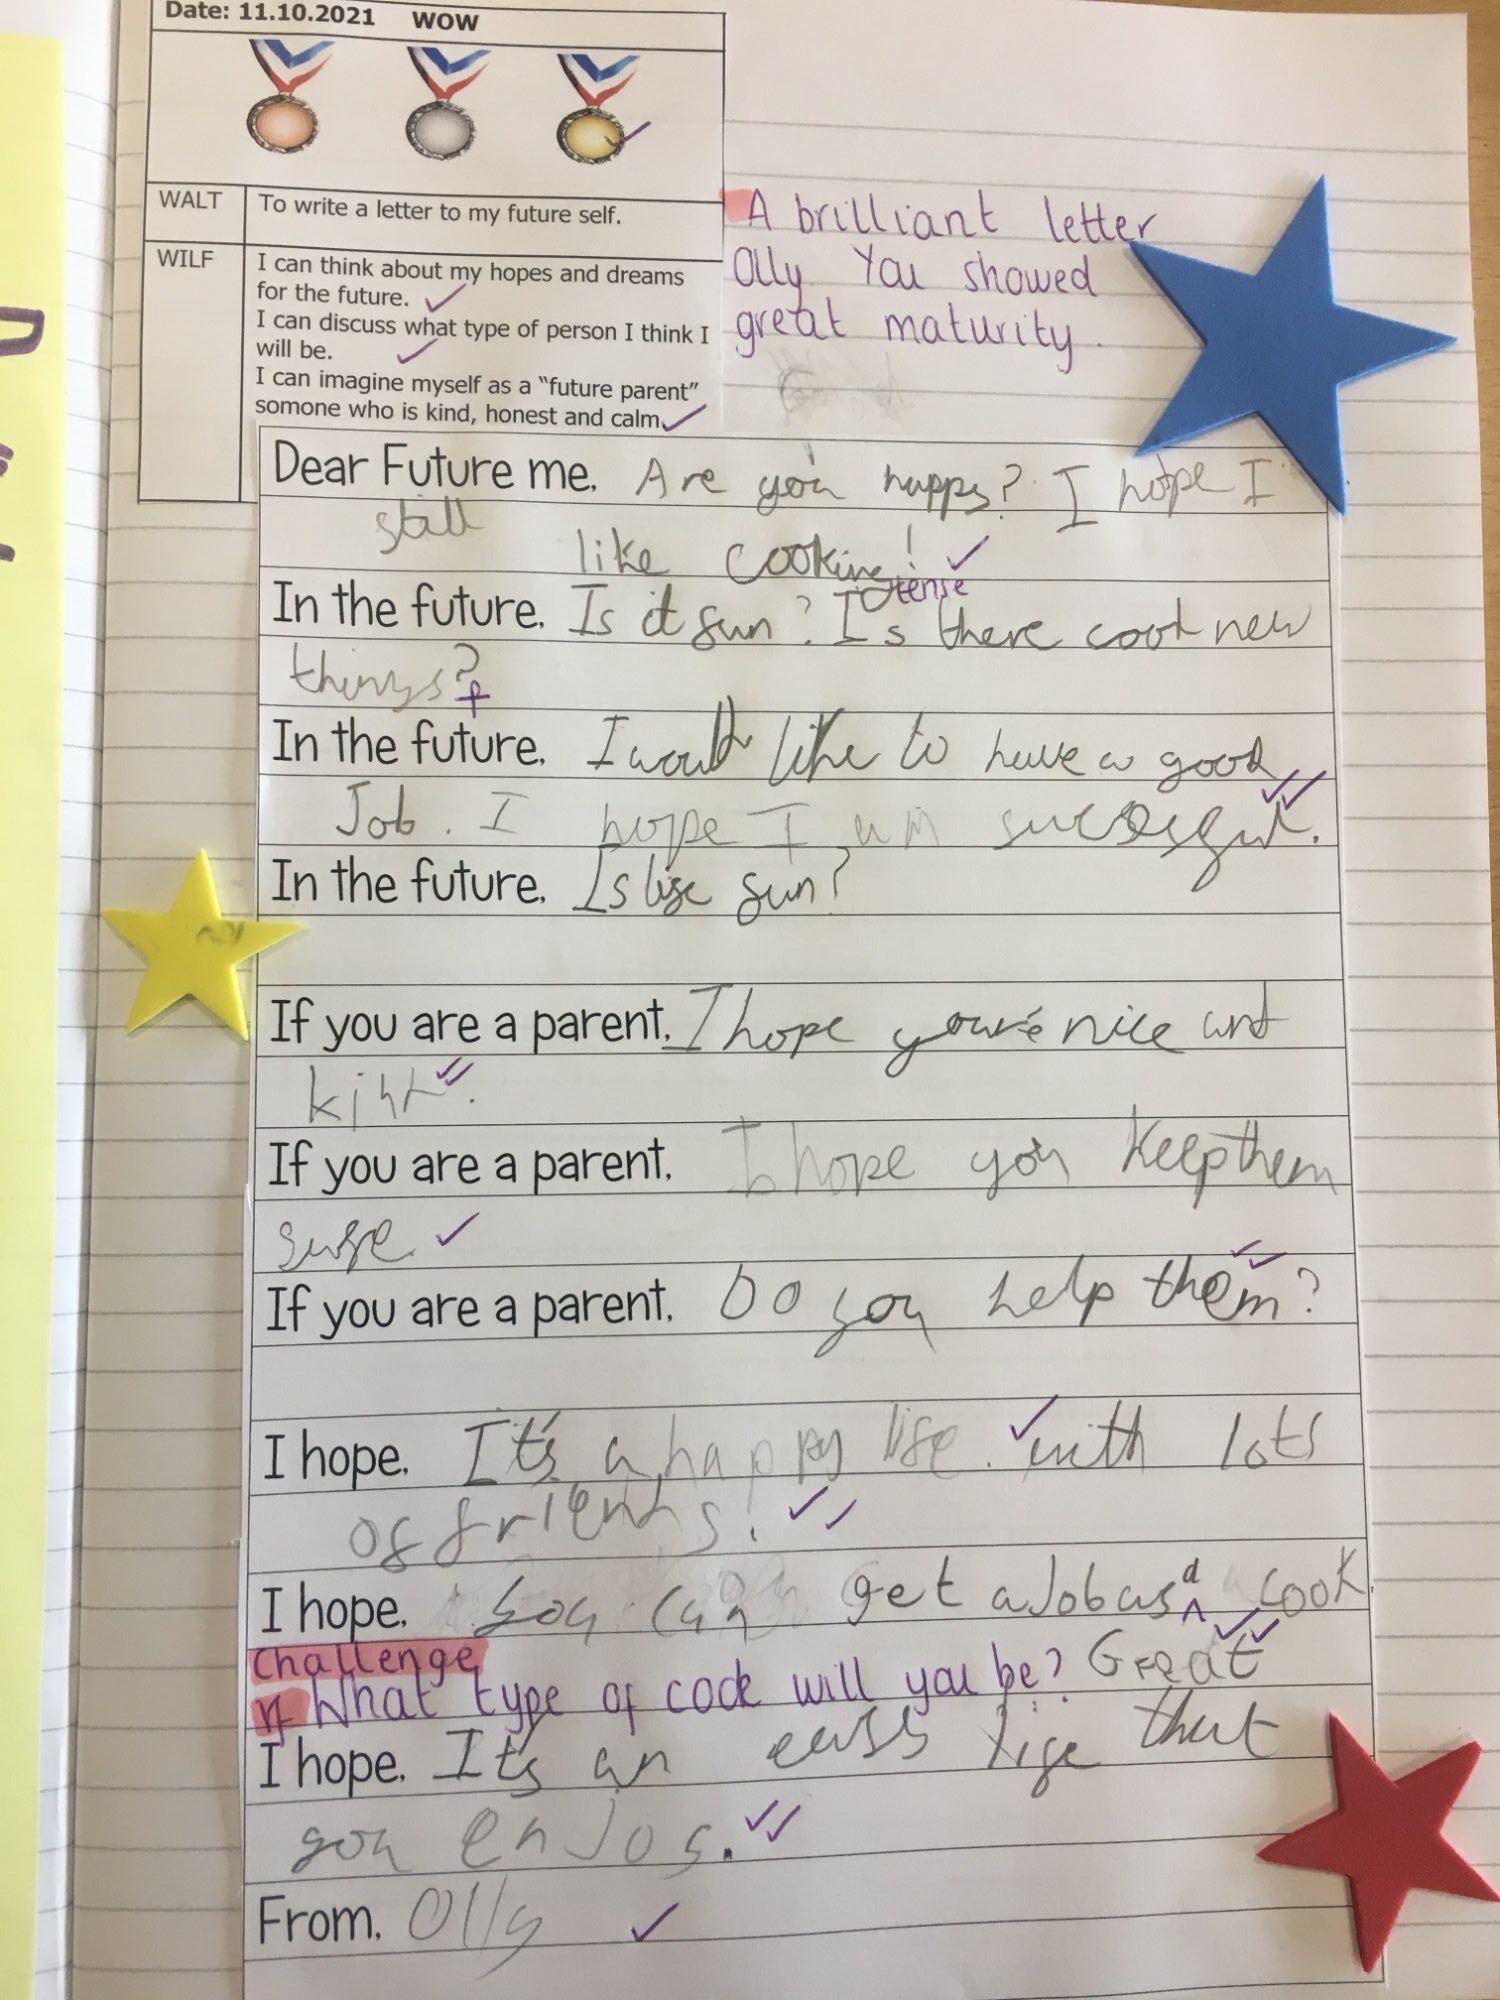 Date: 11.10.2021 WOW
WALT To write a letter to my future self.
WILF I can think about my hopes and dreams
for the future.
I can discuss what type of person I think I
will be.
I can imagine myself as a “future parent”
somone who is kind, honest and calm.
A brilliant letter
Olly. You showed
great maturity.
Dear Future me. Are you happy? I hope I
still
like cooking!
tense
In the future. Is it fun? Is there cool new
things?
In the future. I would like to have a good
Job. I hope I am successful.
In the future. Is life fun?
If you are a parent. I hope you're nice and
kind.
If you are a parent. I hope you keep them
safe.
If you are a parent. Do you help them?
I hope. It's a happy life. with lots
of friends!
I hope. you can get a Job as a cook.
Challenge
What type of cook will you be? Great
I hope. It's an easy life that
you enjoy.
From. Olly